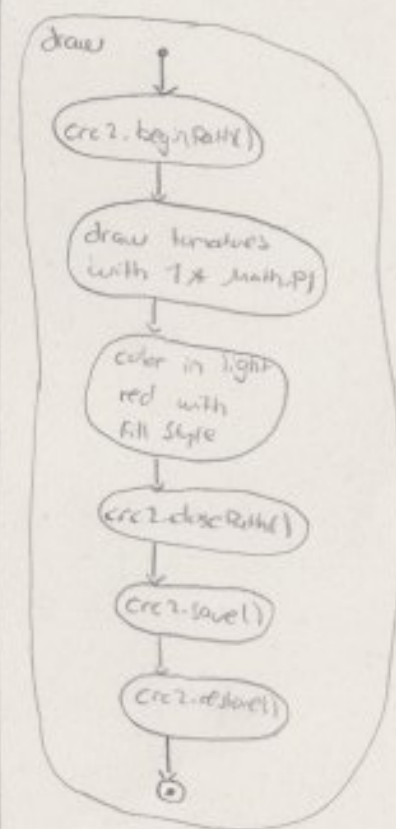 draw
crc2.beginPath()
draw tomatoes
with 1 * Math.PI
color in light
red with
fill Style
crc2.closePath()
crc2.save()
crc2.restore()